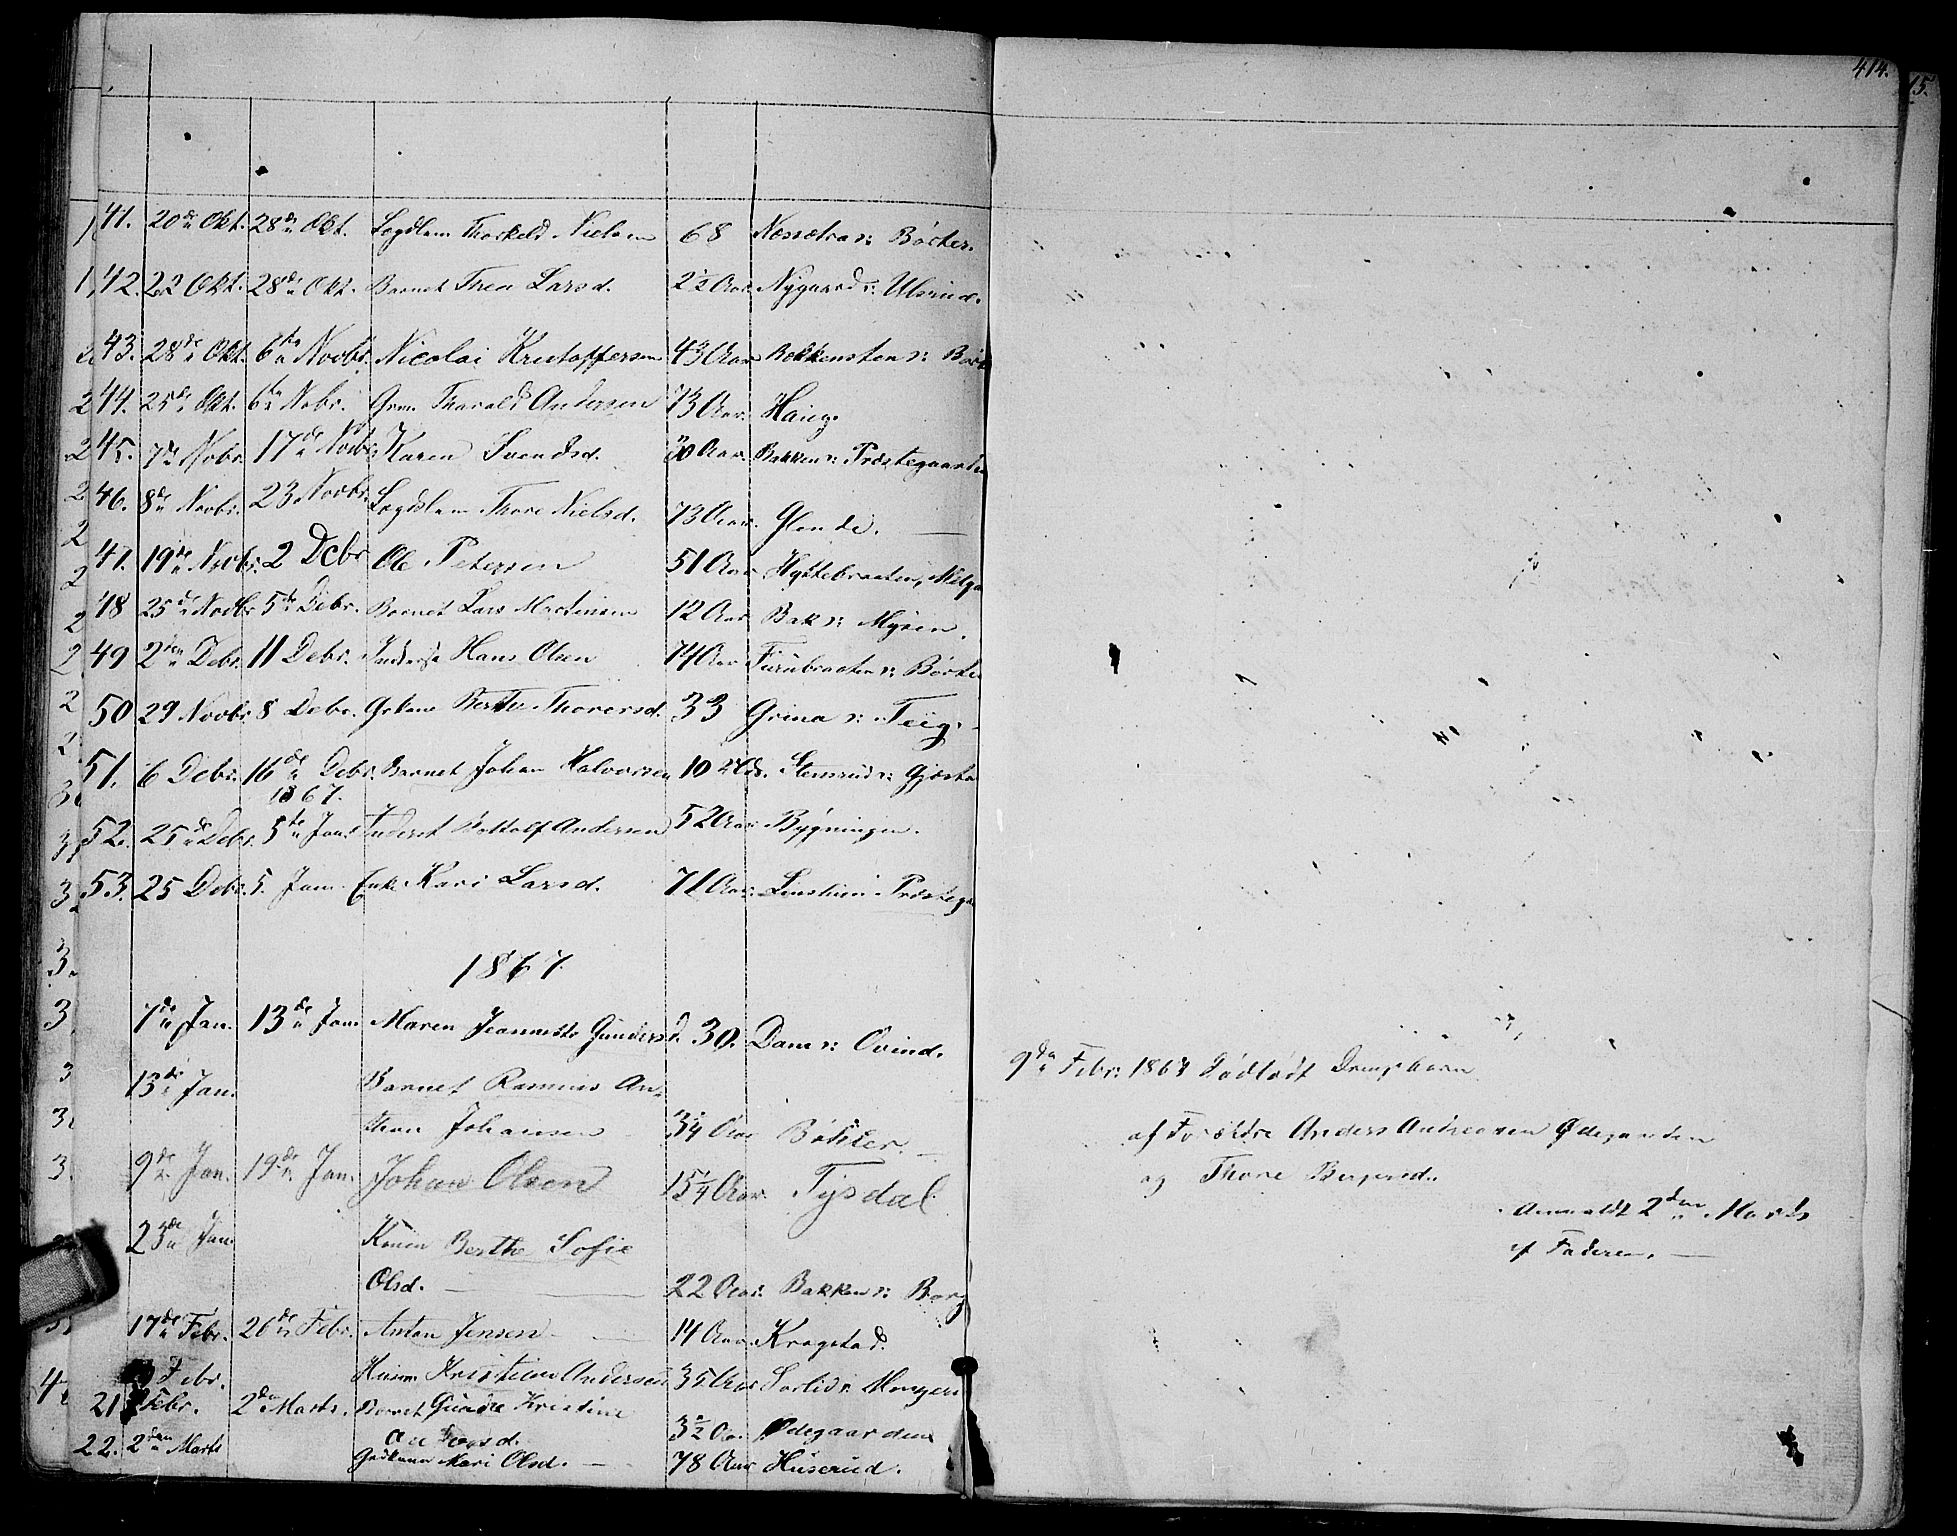 414.
15.
41. 20de Okt. 28de Okt. Lægdslem Thorkeld Nielsen 68 Næssetra v: Böcter.
42. 22 Okt. 28de Okt. Barnet Thea Larsd. 2½ Aar Nygaard v: Ulsrud.
43. 28de Okt. 6te Novbr. Nicolai Kristoffersen 43 Aar Bakkenstøa v:
44. 25de Okt. 6te Nobr. Grm. Tharald Andersen 73 Aar. Haug.
45. 7de Nobr. 17de Novbr. Karen Svendsd. 30 Aar. Bakken v: Præstegaarden
46. 8de Novbr. 23 Novbr. Lægdslem Thore Nielsd. 73 Aar. Glende.
47. 19de Novbr. 2 Debr Ole Petersen 51 Aar Hyttebraaten,
48 25de Novbr 5te Debr. Barnet Lars Martinsen 12 Aar Bak v: Mysen.
49 2den Debr. 11 Debr. Inderst Hans Olsen 74 Aar Furubraaten v: Böcter
50 29 Novbr. 8 Debr. Grkone Berthe Thorersd. 33 Grina v: Teig.
51. 6 Debr. 16de Debr. Barnet Johan Halvorsen 10 Mds. Stensrud v:
1867.
52. 25de Debr. 5te Jan. Inderst Bottolf Andersen 52 Aar Bygningen.
53. 25 Debr. 5. Jan. Enke Kari Larsd. 71 Aar.
1867.
7de Jan. 13de Jan. Maren Jeannette Gundersd. 30. Dam v: Ovind.
13de Jan. Barnet Rasmus An-
thon Johansen 3¼ Aar Böhler.
9de Jan. 19de Jan. Johan Olsen 15¼ Aar. Tysdal
23de Jan. Konen Berthe Sofie
Olsd. 22 Aar. Bakken v: Borg
17de Febr. 26de Febr. Anton Jensen 14 Aar Kragstad.
Febr. Huusm. Kristian Andersen 35 Aar Sorlid v:
21 Febr. 2den Marts. Barnet Gunda Kristine
Andersd. 3½ Aar. Ødegaarden
22. 2den Marts Gaardkone Mari Olsd. 78 Aar Huserud.
9de Febr. 1867 Dødfødt Drengebarn
af Forældre Anders Andreasen Ødegaarden
og Thore Bergersd.
Anmeldt 2den Marts
af Faderen.